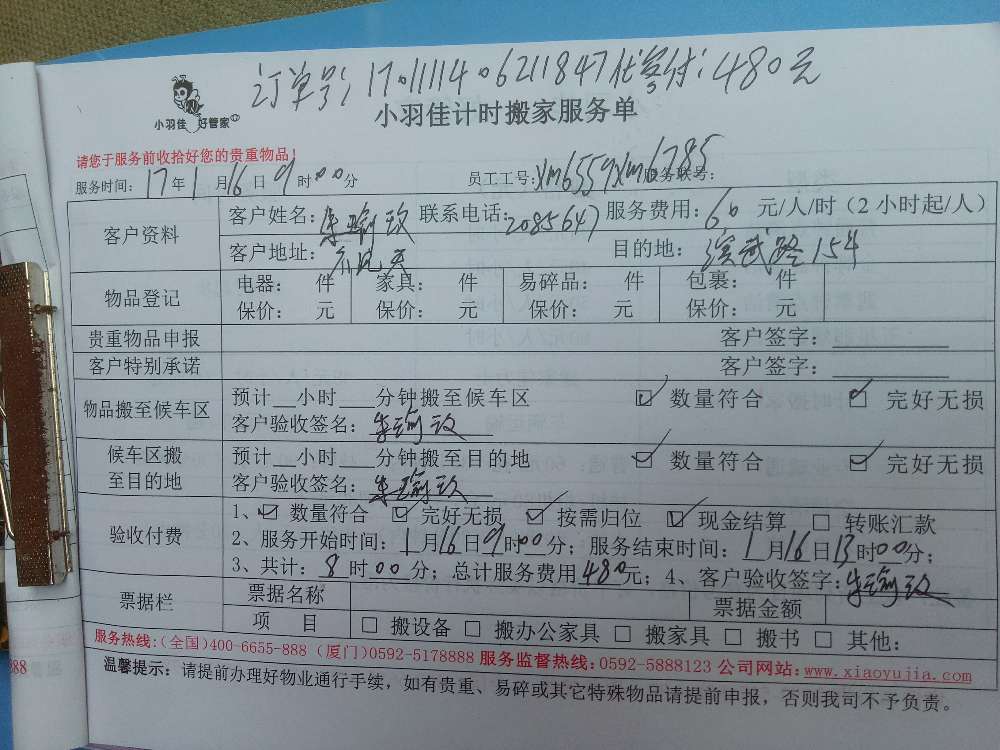 订单号:1701111406211847代签付:480元
小羽佳 好管家
小羽佳计时搬家服务单
请您于服务前收拾好您的贵重物品!
服务时间:17年1月16日9时00分 员工工号:xm6559xm6785 服务联号:
客户资料 客户姓名:朱瑜玫 联系电话:2085647 服务费用:60元/人/时(2小时起/人)
客户地址: 目的地:演武路154
物品登记 电器: 件 家具: 件 易碎品: 件 包裹: 件
保价: 元 保价: 元 保价: 元 保价: 元
贵重物品申报 客户签字:
客户特别承诺 客户签字:
物品搬至候车区 预计__小时___分钟搬至候车区 ☑ 数量符合 ☑ 完好无损
客户验收签名:朱瑜玫
候车区搬至目的地 预计__小时___分钟搬至目的地 ☑ 数量符合 ☑ 完好无损
客户验收签名:朱瑜玫
验收付费 1、☑ 数量符合 ☑ 完好无损 ☑ 按需归位 ☑ 现金结算 □ 转账汇款
2、服务开始时间:1月16日9时00分;服务结束时间:1月16日13时00分;
3、共计:8时00分;总计服务费用480元;4、客户验收签字:朱瑜玫
票据栏 票据名称 票据金额
项 目 □ 搬设备 □ 搬办公家具 □ 搬家具 □ 搬书 □ 其他:
服务热线:(全国)400-6655-888 (厦门)0592-5178888 服务监督热线:0592-5888123 公司网站:www.xiaoyujia.com
温馨提示:请提前办理好物业通行手续,如有贵重、易碎或其它特殊物品请提前申报,否则我司不予负责。